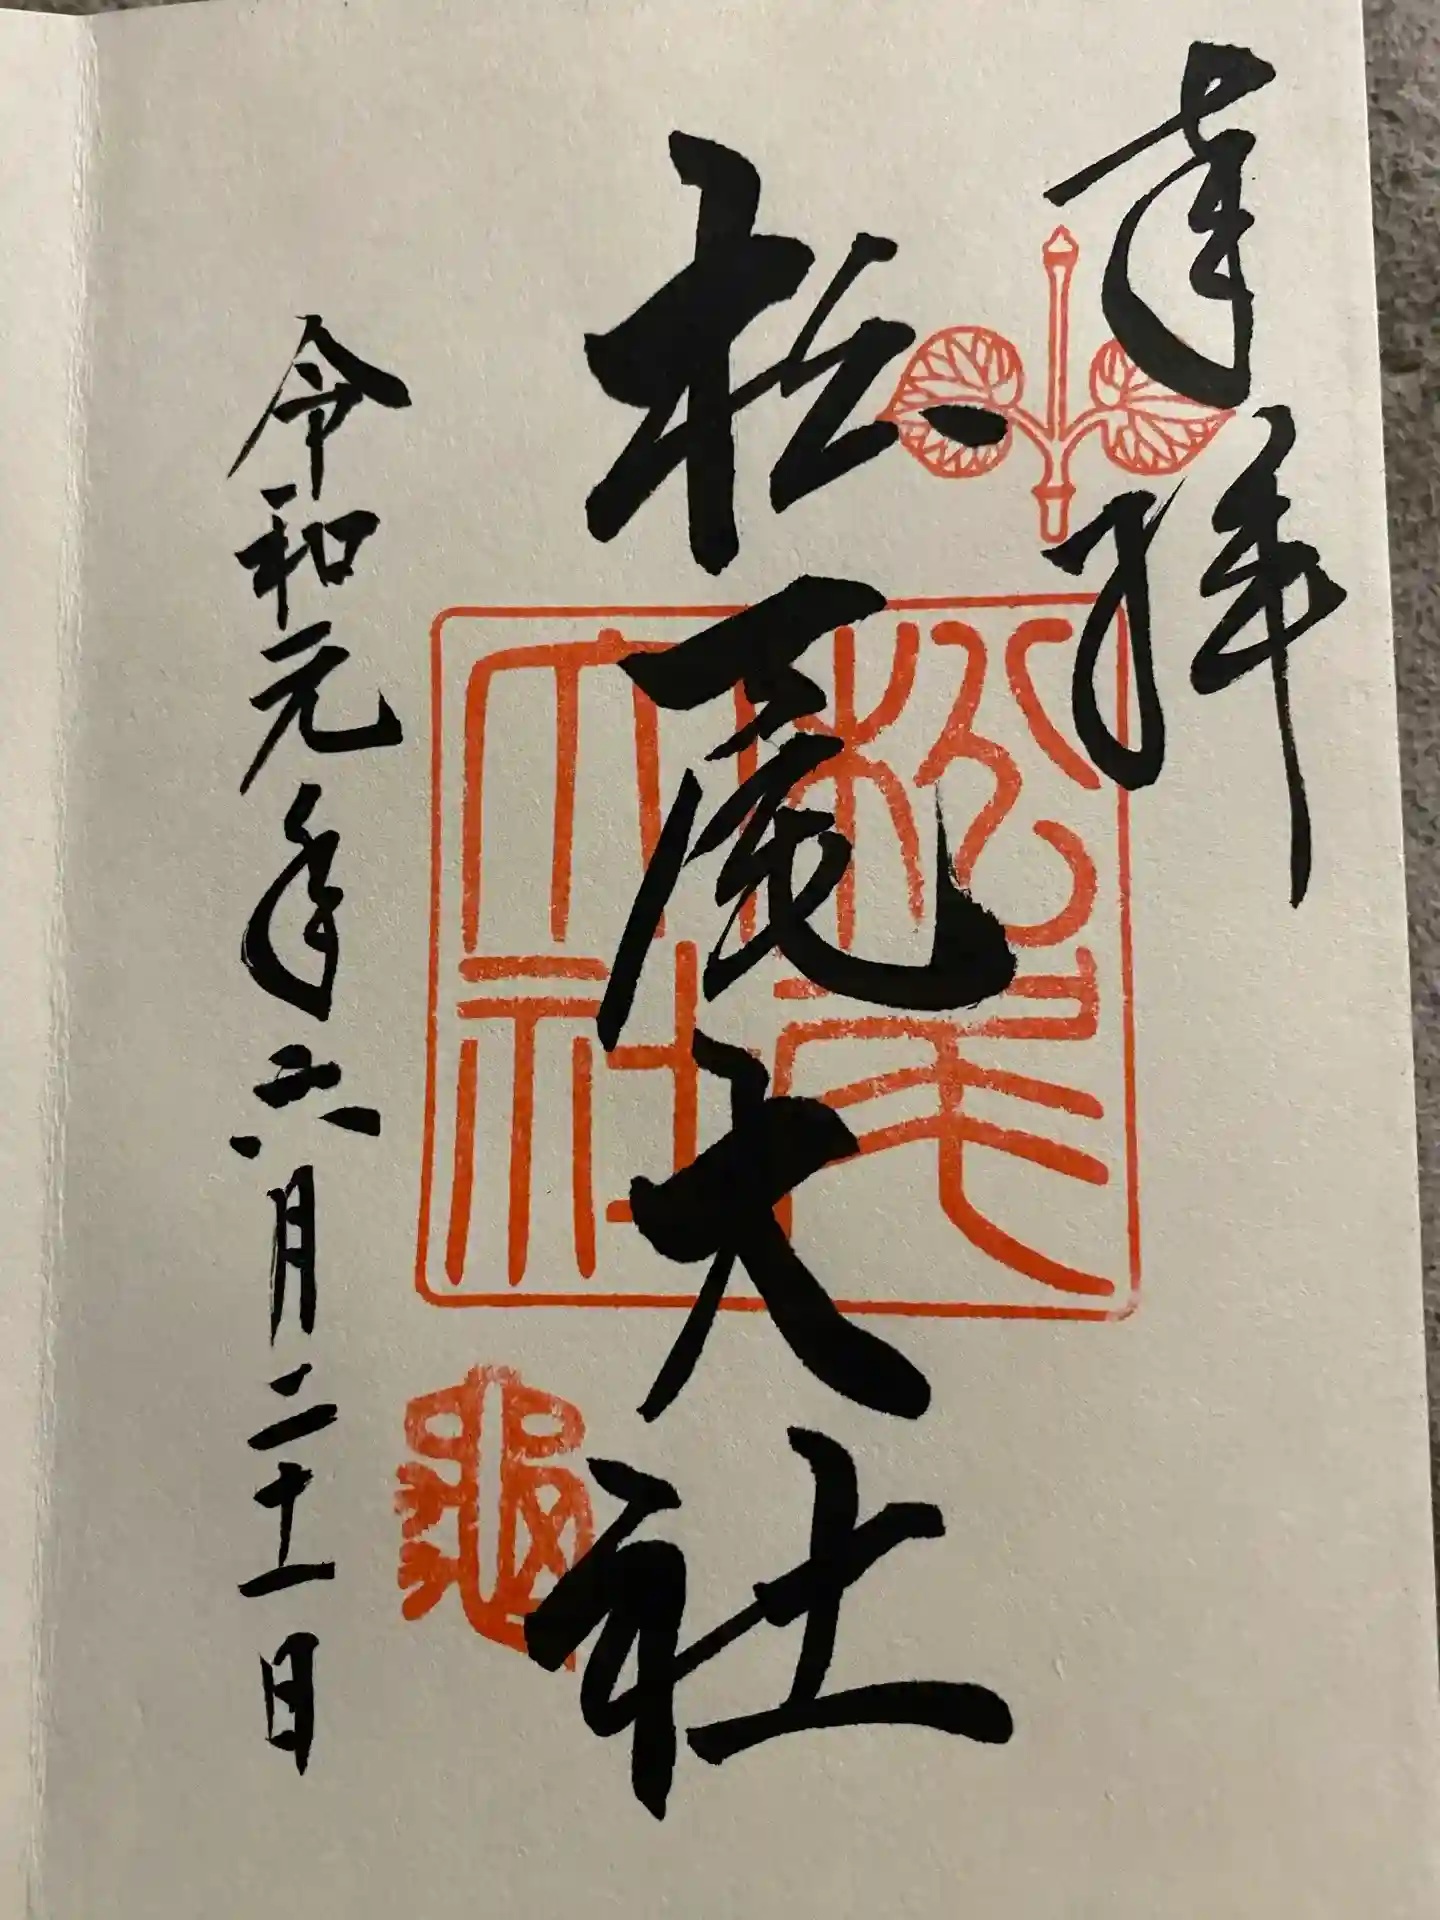 奉拝
松尾大社
松尾大社
亀
令和元年六月二十一日